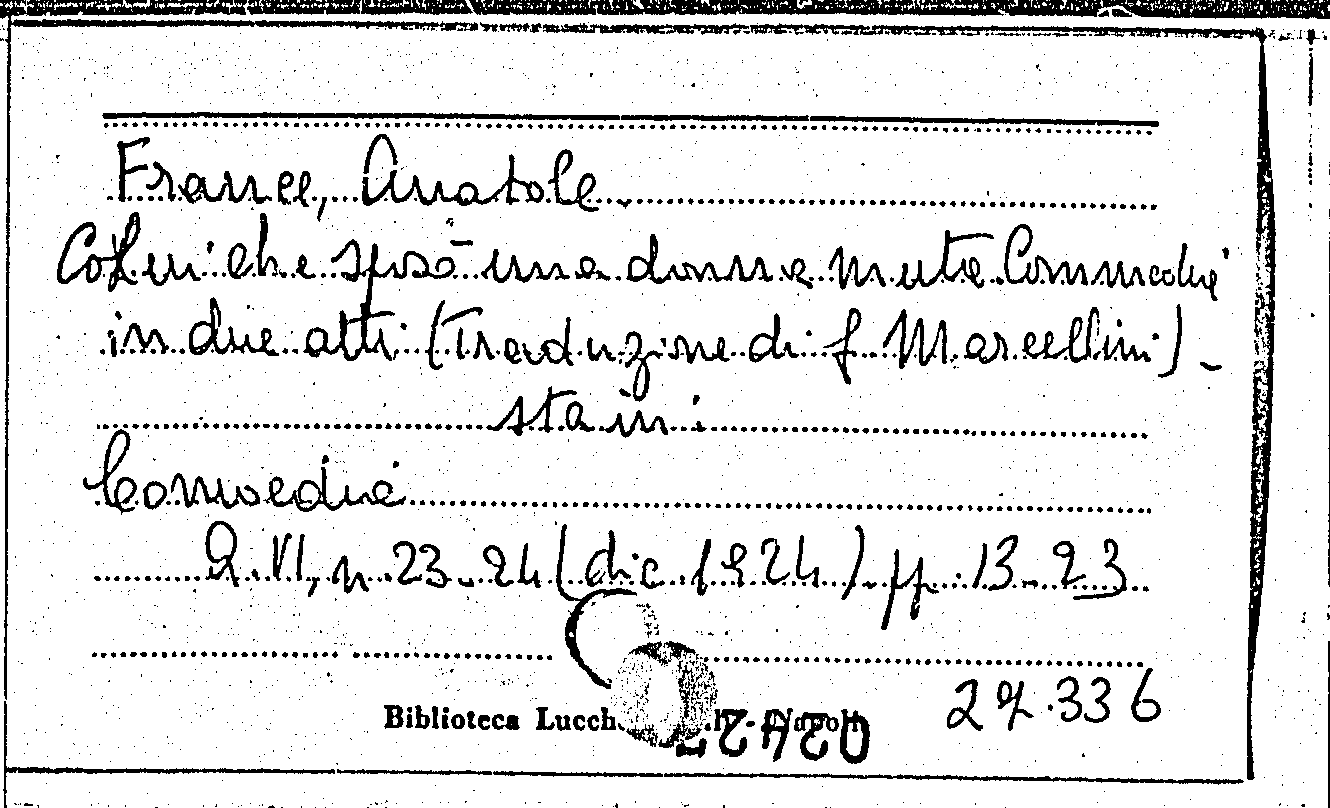 France, Anatole.
Colui che sposò una donna muta Commedia
in due atti (Traduzione di f. Marcellini) -
sta in:
Comoedia
A. VI, n. 23-24 (dic 1924) pp. 13-23
27.336
Biblioteca